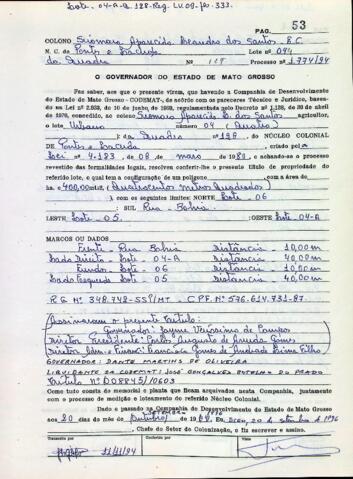 Lote-04-A-Q.128-Reg. LV.09-fl-333.
PAG. 53
COLONO Aparecida Brandão dos Santos - B.C.
N. C. de Pontes e Lacerda Lote nº
da Quadra nº Processo nº 1.774/94
O GOVERNADOR DO ESTADO DE MATO GROSSO
Faz saber, aos que o presente virem, que havendo a Companhia de Desenvolvimento
do Estado de Mato Grosso - CODEMAT-, de acôrdo com os pareceres Técnico e Jurídico, baseado na Lei nº de 10 de junho de regulamentada pelo Decreto nº 1.138, de 20 de abril
de 1970, concedido, ao colono Aparecida B. dos Santos agricultor,
o lote Urbano número 04 (Quatro)
da Quadra nº 128, DO NÚCLEO COLONIAL
DE Pontes e Lacerda criado pela
Lei 4.183, de 08, de março de 1980, e achando-se o processo
revestido das formalidades legais, resolvem conferir-lhe, o presente título de propriedade do
referido lote, o qual tem a configuração de um polígono com a área de
ha 400,00mts² (Quatrocentos metros Quadrados)
e com os seguintes limites: NORTE Lote-06
SUL Rua - Bahia
LESTE Lote-05. OESTE Lote 04-A
MARCOS OU DADOS
Frente - Rua Bahia Distância - 10,00 m
Lado Direito - Lote - 04-A Distância - 40,00 m
Fundo - Lote - 06 Distância - 10,00 m
Lado Esquerdo - Lote - 05 Distância - 40,00 m
R.G Nº 348.748-SSP/MT - C.P.F. Nº 576.614.731-87
Assinaram o presente título:
Governador: Jayme Veríssimo de Campos
Diretor Presidente: Carlos Augusto de Arruda Gomes
Diretor Adm. e Financ: Francisco Gomes de Andrade Lima Filho
GOVERNADOR: DANTE MARTINS DE OLIVEIRA
LIQUIDANTE DA CODEMAT: JOSÉ GONÇALVES BOTELHO DO PRADO
Título Nº D08845/0603
Como tudo consta do memorial e planta que ficam arquivados nesta Companhia, juntamente
com o processo de medição e loteamento do referido Núcleo Colonial.
Dado e passado na Companhia de Desenvolvimento do Estado de Mato Grosso
aos 20 dias do mês de Setembro 20 de setembro 1996
Chefe do Setor de Colonização, o fiz escrever e assino.
Transcrito por Em Conferido por Visto
11/11/94